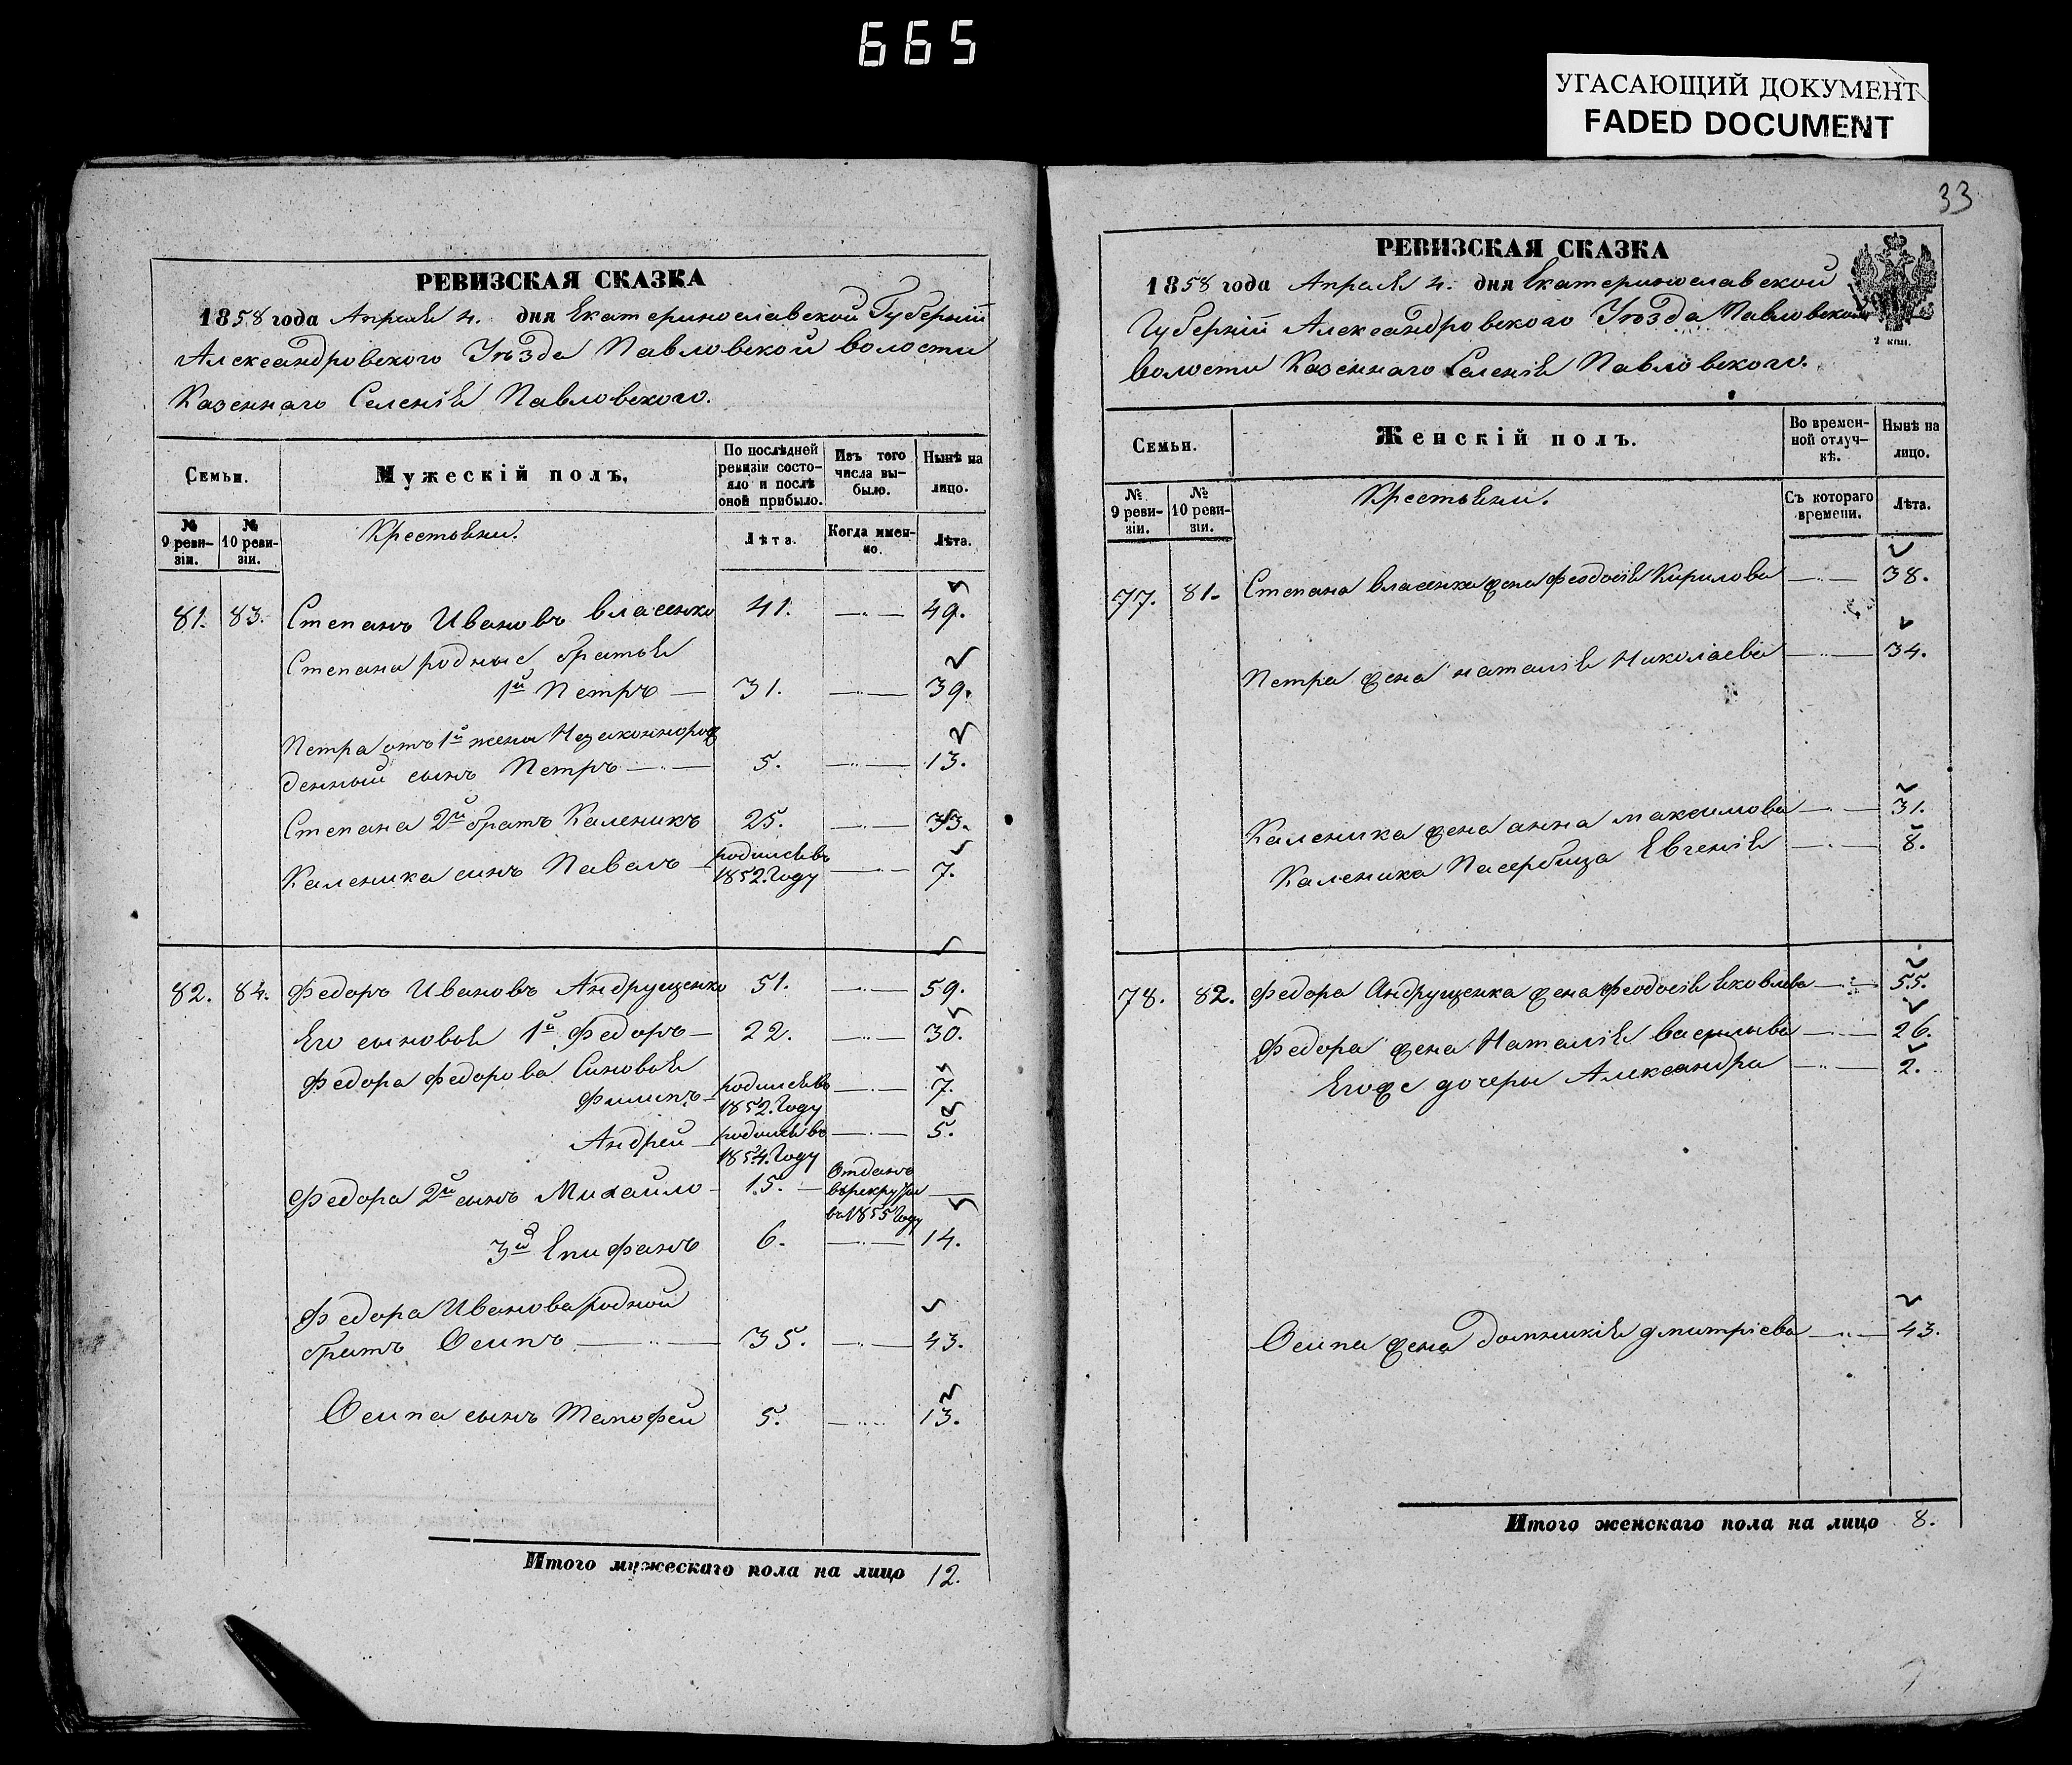 665
УГАСАЮЩИЙ ДОКУМЕНТ
FADED DOCUMENT
РЕВИЗСКАЯ СКАЗКА
1858 года Апреля 4. дня Екатеринославской Губерніи
Александровского Уезда Павловской волости
Казеннаго Селенія Павловского.
Семьи.
Мужескій полъ.
По послѣдней ревизіи состояло и послѣ оной прибыло.
Изъ того числа выбыло.
Нынѣ на лицо.
№ 9 ревизіи.
№ 10 ревизіи.
Крестьяни.
Лѣта.
Когда именно.
Лѣта.
81. 83. Степанъ Ивановъ Власенко 41. 49.
Степана родные братья
1й Петръ 31. 39.
Петра отъ 1й жены Незаконнорож
денный сынъ Петръ 5. 13.
Степана 2й братъ Каленикъ 25. 33.
Каленика сынъ Павелъ родился въ 1852. Году 7.
82. 84. Федоръ Ивановъ Андрущенко 51. 59.
Его сыновья 1й Федоръ 22. 30.
Федора Федорова Синовья
Филипъ родился въ 1852. Году 7.
Андрей родился въ 1854. Году 5.
Федора 2й сынъ Михайло 15. Отданъ в рекруты въ 1855 Году
3й Епифанъ 6. 14.
Федора Иванова родной
братъ Осипъ 35. 43.
Осипа сынъ Тимофей 5. 13.
Итого мужескаго пола на лицо 12.
33
РЕВИЗСКАЯ СКАЗКА
1858 года Апреля 4. дня Екатеринославской
Губерніи Александровского Уезда Павловской
волости Казеннаго Селенія Павловского.
Семьи.
Женскій полъ.
Во временной отлучкѣ.
Нынѣ на лицо.
№ 9 ревизіи.
№ 10 ревизіи.
Крестьяни.
Съ котораго времени.
Лѣта.
77. 81. Степана Власенка жена Феодосія Кирилова 38.
Петра жена Наталія Николаева 34.
Каленика жена анна максимова 31.
Каленика Пасербица Евгенія 8.
78. 82. Федора Андрущенка жена Феодосія яковлева 55.
Федора жена Наталія васильева 26.
Егоже дочеры Александра 2.
Осипа жена домникія дмитріева 43.
Итого женскаго пола на лицо 8.